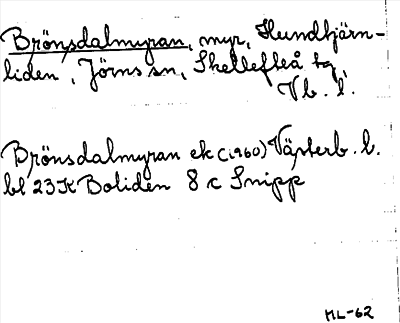 Brönsdalmyran, myr, Hundtjärn-
liden, Jörns sn, Skellefteå tg
Vb. l.
Brönsdalmyran ek (1960) Västerb. l.
bl 23K Boliden 8 c Snipp
ML-62